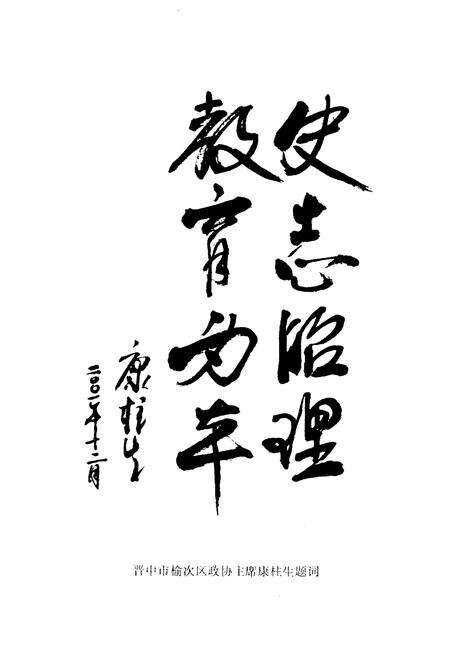 史志昭理
教育为本
康桂生
二〇〇一年十二月
晋中市榆次区政协主席康桂生题词